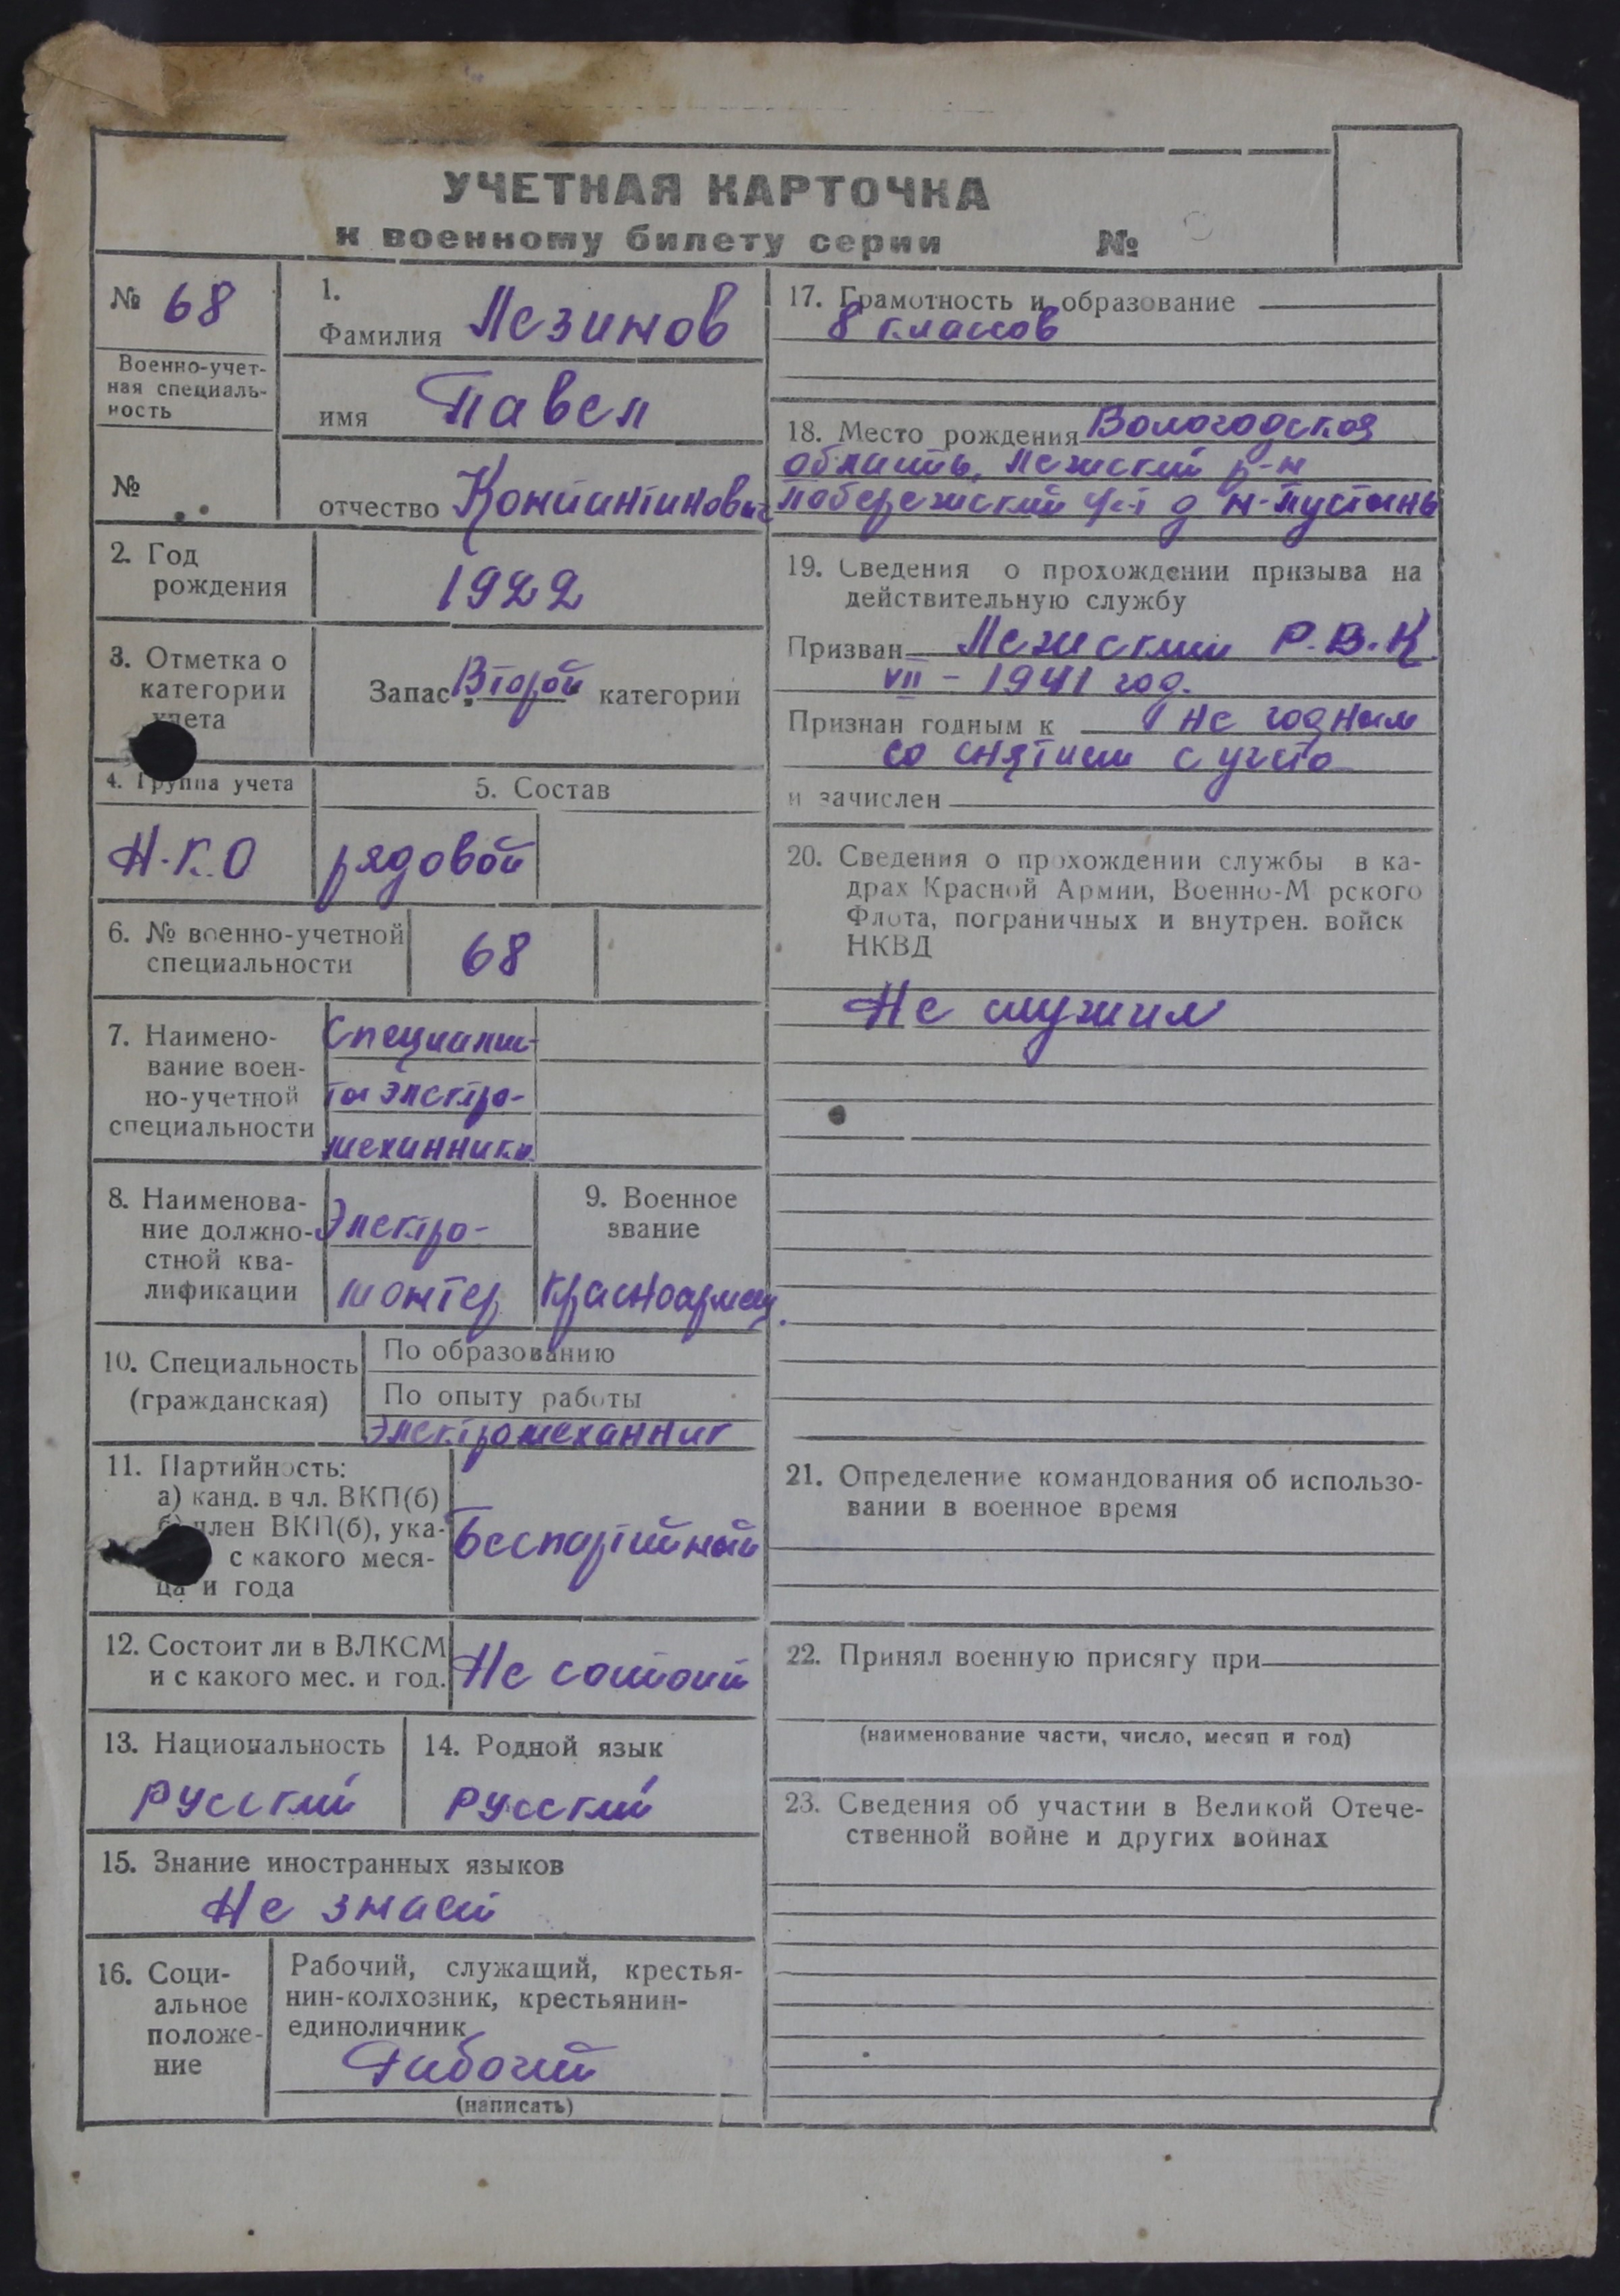 УЧЕТНАЯ КАРТОЧКА
к военному билету серии №
№ 68
Военно-учет-
ная специаль-
ность
№
1.
Фамилия Лезинов
имя Павел
отчество Констинтинович
2. Год
рождения
1922
3. Отметка о
категории
учета
Запас Второй категории
4. Группа учета
Н.К.О
5. Состав
рядовой
6. № военно-учетной
специальности
68
7. Наимено-
вание воен-
но-учетной
специальности
Специалис-
ты электро-
механники
8. Наименова-
ние должно-
стной ква-
лификации
Электро-
монтер
9. Военное
звание
красноармеец.
10. Специальность
(гражданская)
По образованию
По опыту работы
Электромеханник
11. Партийность:
а) канд. в чл. ВКП(б)
б) член ВКП(б), ука-
с какого меся-
ца и года
Беспартийный
12. Состоит ли в ВЛКСМ
и с какого мес. и год.
Не состоит
13. Национальность
русский
14. Родной язык
русский
15. Знание иностранных языков
Не знает
16. Соци-
альное
положе-
ние
Рабочий, служащий, крестья-
нин-колхозник, крестьянин-
единоличник
Рабочий
(написать)
17. Грамотность и образование
8 классов
18. Место рождения Вологодская
область, Лежский р-н
Побережский с/с д Н-Пустынь
19. Сведения о прохождении призыва на
действительную службу
Призван Лежским Р.В.К
VII - 1941 год.
Признан годным к не годным
со снятием с учета
и зачислен
20. Сведения о прохождении службы в ка-
драх Красной Армии, Военно-М рского
Флота, пограничных и внутрен. войск
НКВД
Не служил
21. Определение командования об использо-
вании в военное время
22. Принял военную присягу при
(наименование части, число, месяц и год)
23. Сведения об участии в Великой Отече-
ственной войне и других войнах